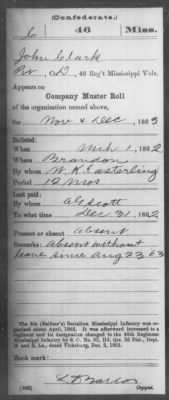 (Confederate.)
C 46 Miss.
John Clark
Co. D, 46 Reg't Mississippi Vols.
Appears on
Company Muster Roll
of the organization named above,
for Nov & Dec, 1863
Enlisted:
When Mch 1, 1862
Where Brandon
By whom W. K. Easterling
Period 12 mos
Last paid:
By whom Scott
To what time Dec 31, 1862
Present or absent Absent
Remarks: Absent without
leave since Aug 23 63
The 6th (Balfour's) Battalion Mississippi Infantry was organized about April, 1862. It was afterward increased to a regiment and its designation changed to the 46th Regiment Mississippi Infantry by S. O. No.
Book mark:
(642) Copyist.